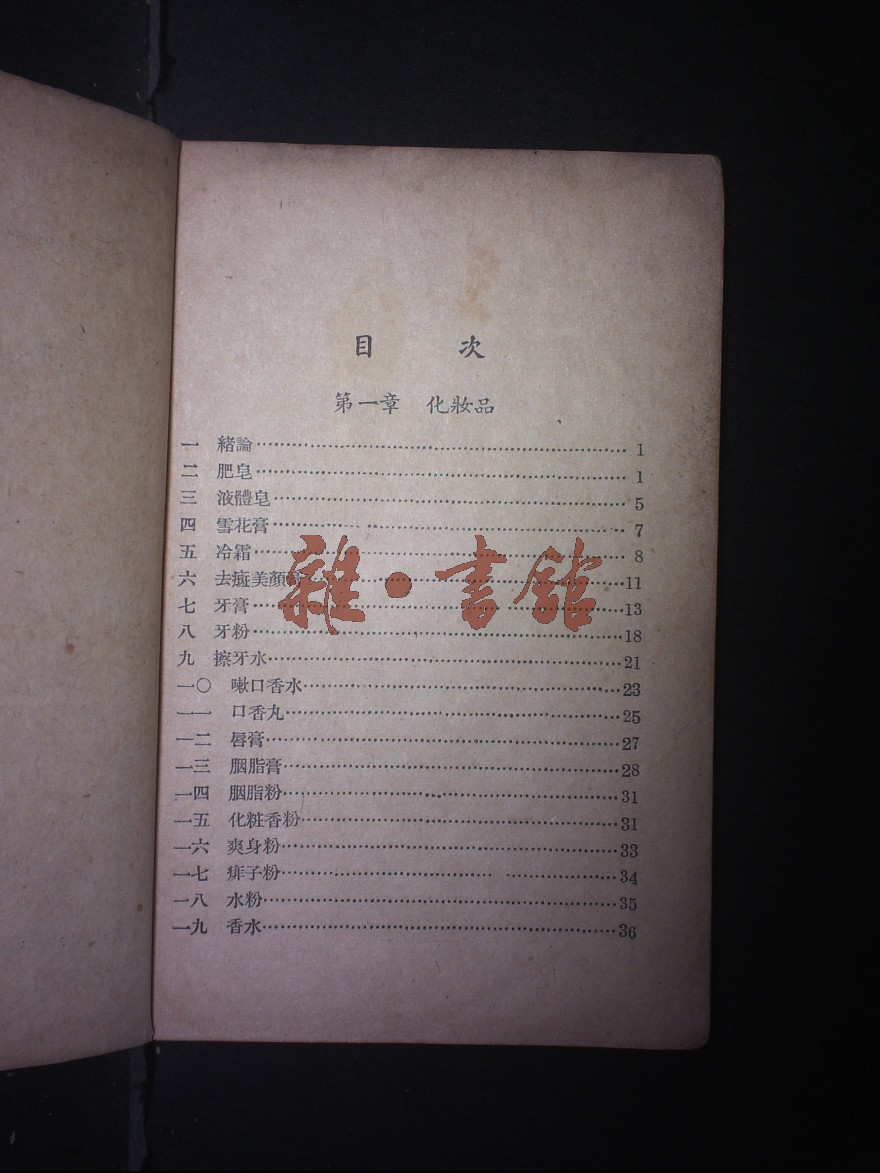 目 次
第一章 化妝品
一 緒論……1
二 肥皂……1
三 液體皂……5
四 雪花膏……7
五 冷霜……8
六 去斑美顏膏……11
七 牙膏……13
八 牙粉……18
九 擦牙水……21
一〇 嗽口香水……23
一一 口香丸……25
一二 唇膏……27
一三 胭脂膏……28
一四 胭脂粉……31
一五 化粧香粉……31
一六 爽身粉……33
一七 痱子粉……34
一八 水粉……35
一九 香水……36
雜·書館